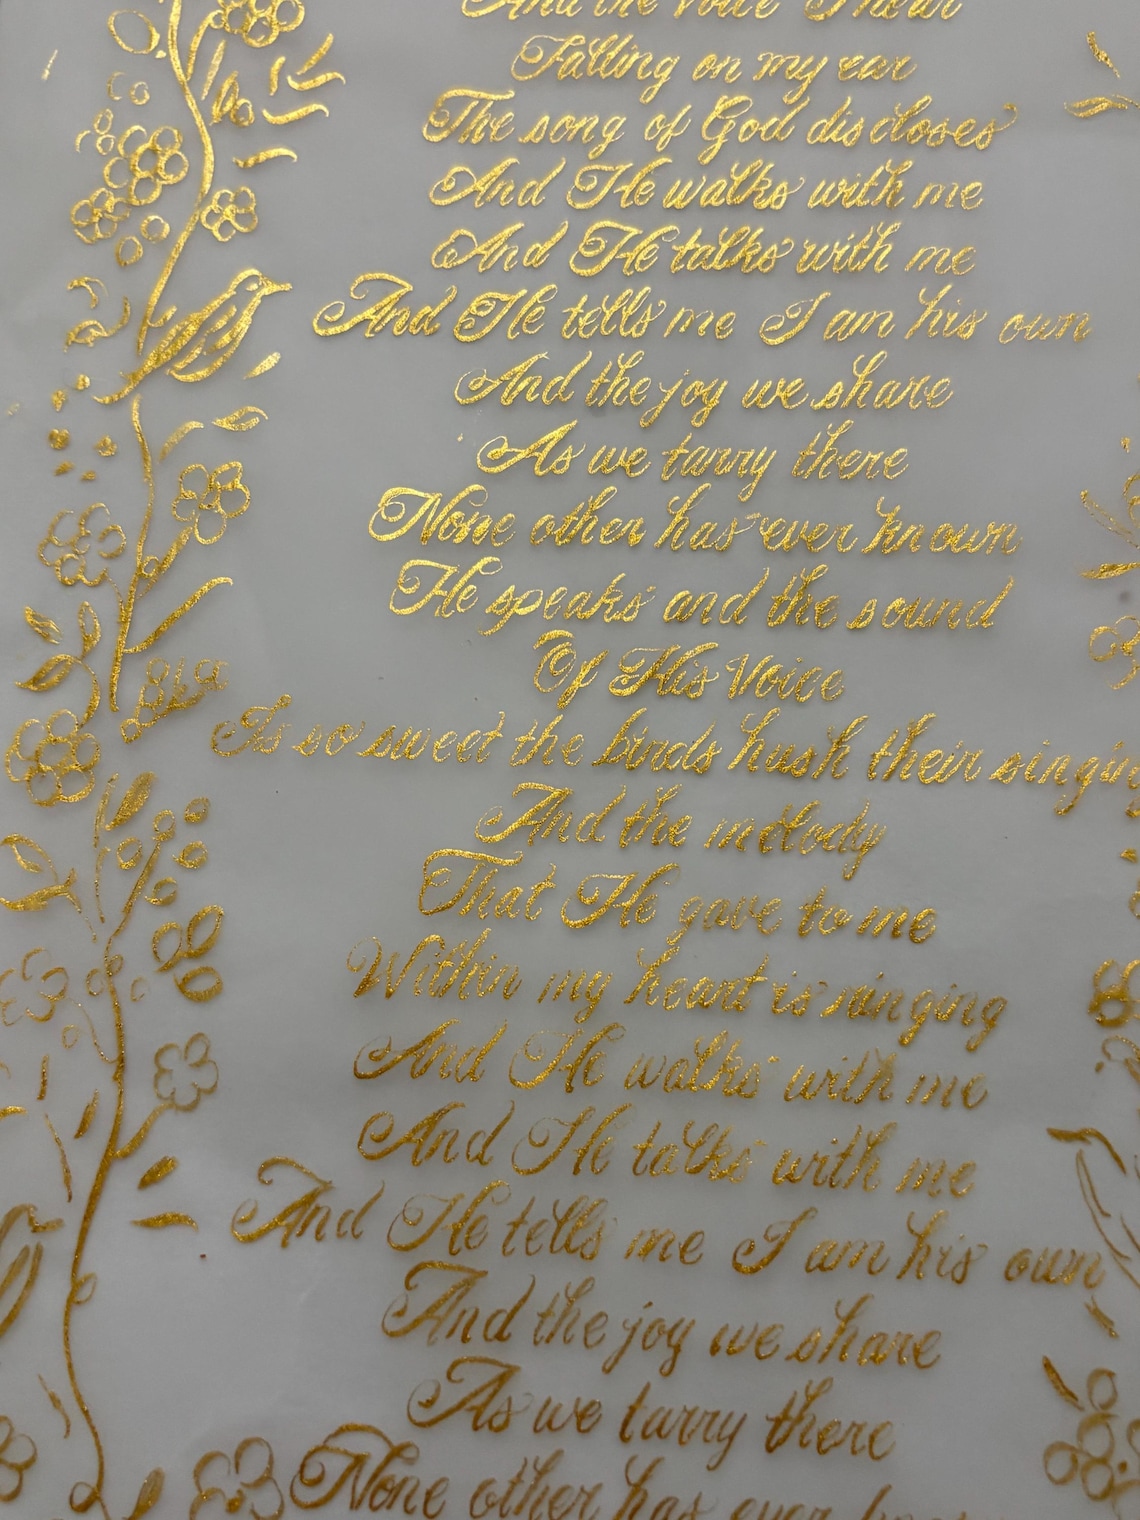 And the voice I hear
Falling on my ear
The song of God discloses
And He walks with me
And He talks with me
And He tells me I am his own
And the joy we share
As we tarry there
None other has ever known
He speaks and the sound
Of His Voice
Is so sweet the birds hush their singing
And the melody
That He gave to me
Within my heart is ringing
And He walks with me
And He talks with me
And He tells me I am his own
And the joy we share
As we tarry there
None other has ever